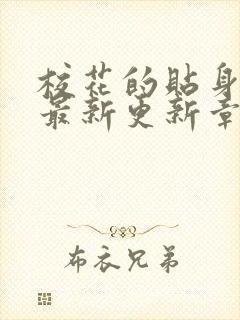 校花的贴身
最新更新章
布衣兄弟